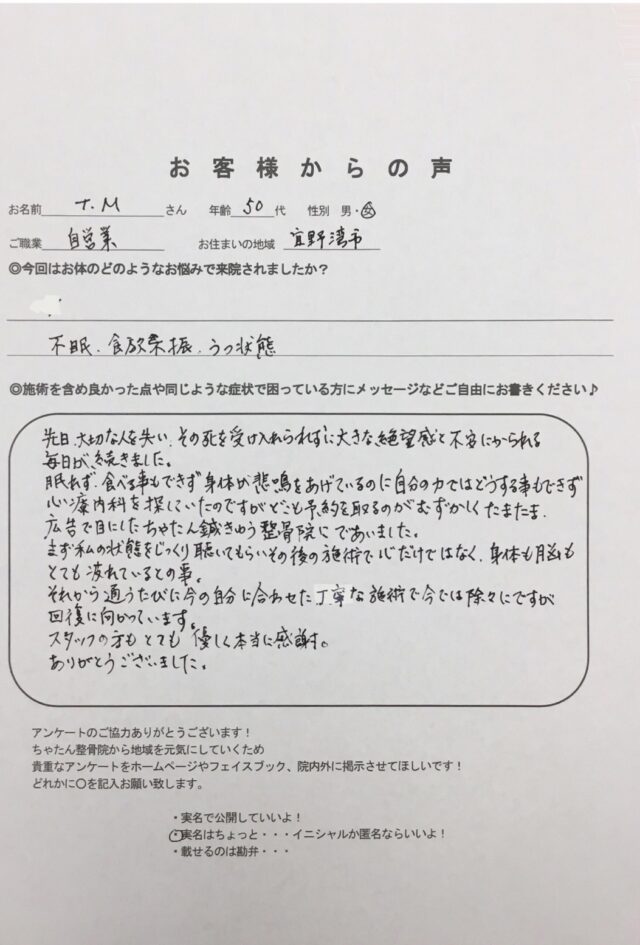 お客様からの声
お名前 T.M さん 年齢 50 代 性別 男・女
ご職業 自営業 お住まいの地域 宜野湾市
◎今回はお体のどのようなお悩みで来院されましたか？
不眠、食欲不振、うつ状態
◎施術を含め良かった点や同じような症状で困っている方にメッセージなどご自由にお書きください♪
先日、大切な人を失い、その死を受け入れられずに大きな絶望感と不安にかられる
毎日が続きました。
眠れず、食べる事もできず身体が悲鳴をあげているのに自分の力ではどうする事もできず
心療内科を探していたのですがどこも予約を取るのがむずかしくたまたま、
広告で目にしたちゃたん鍼きゅう整骨院にであいました。
まず私の状態をじっくり聴いてもらいその後の施術で心だけではなく、身体も脳も
とても疲れているとの事。
それから通うたびに今の自分に合わせた丁寧な施術で今では除々にですが
回復に向かっています。
スタッフの方もとても優しく本当に感謝。
ありがとうございました。
アンケートのご協力ありがとうございます！
ちゃたん整骨院から地域を元気にしていくため
貴重なアンケートをホームページやフェイスブック、院内外に掲示させてほしいです！
どれかに〇を記入お願い致します。
・実名で公開していいよ！
・実名はちょっと・・・イニシャルか匿名ならいいよ！
・載せるのは勘弁・・・